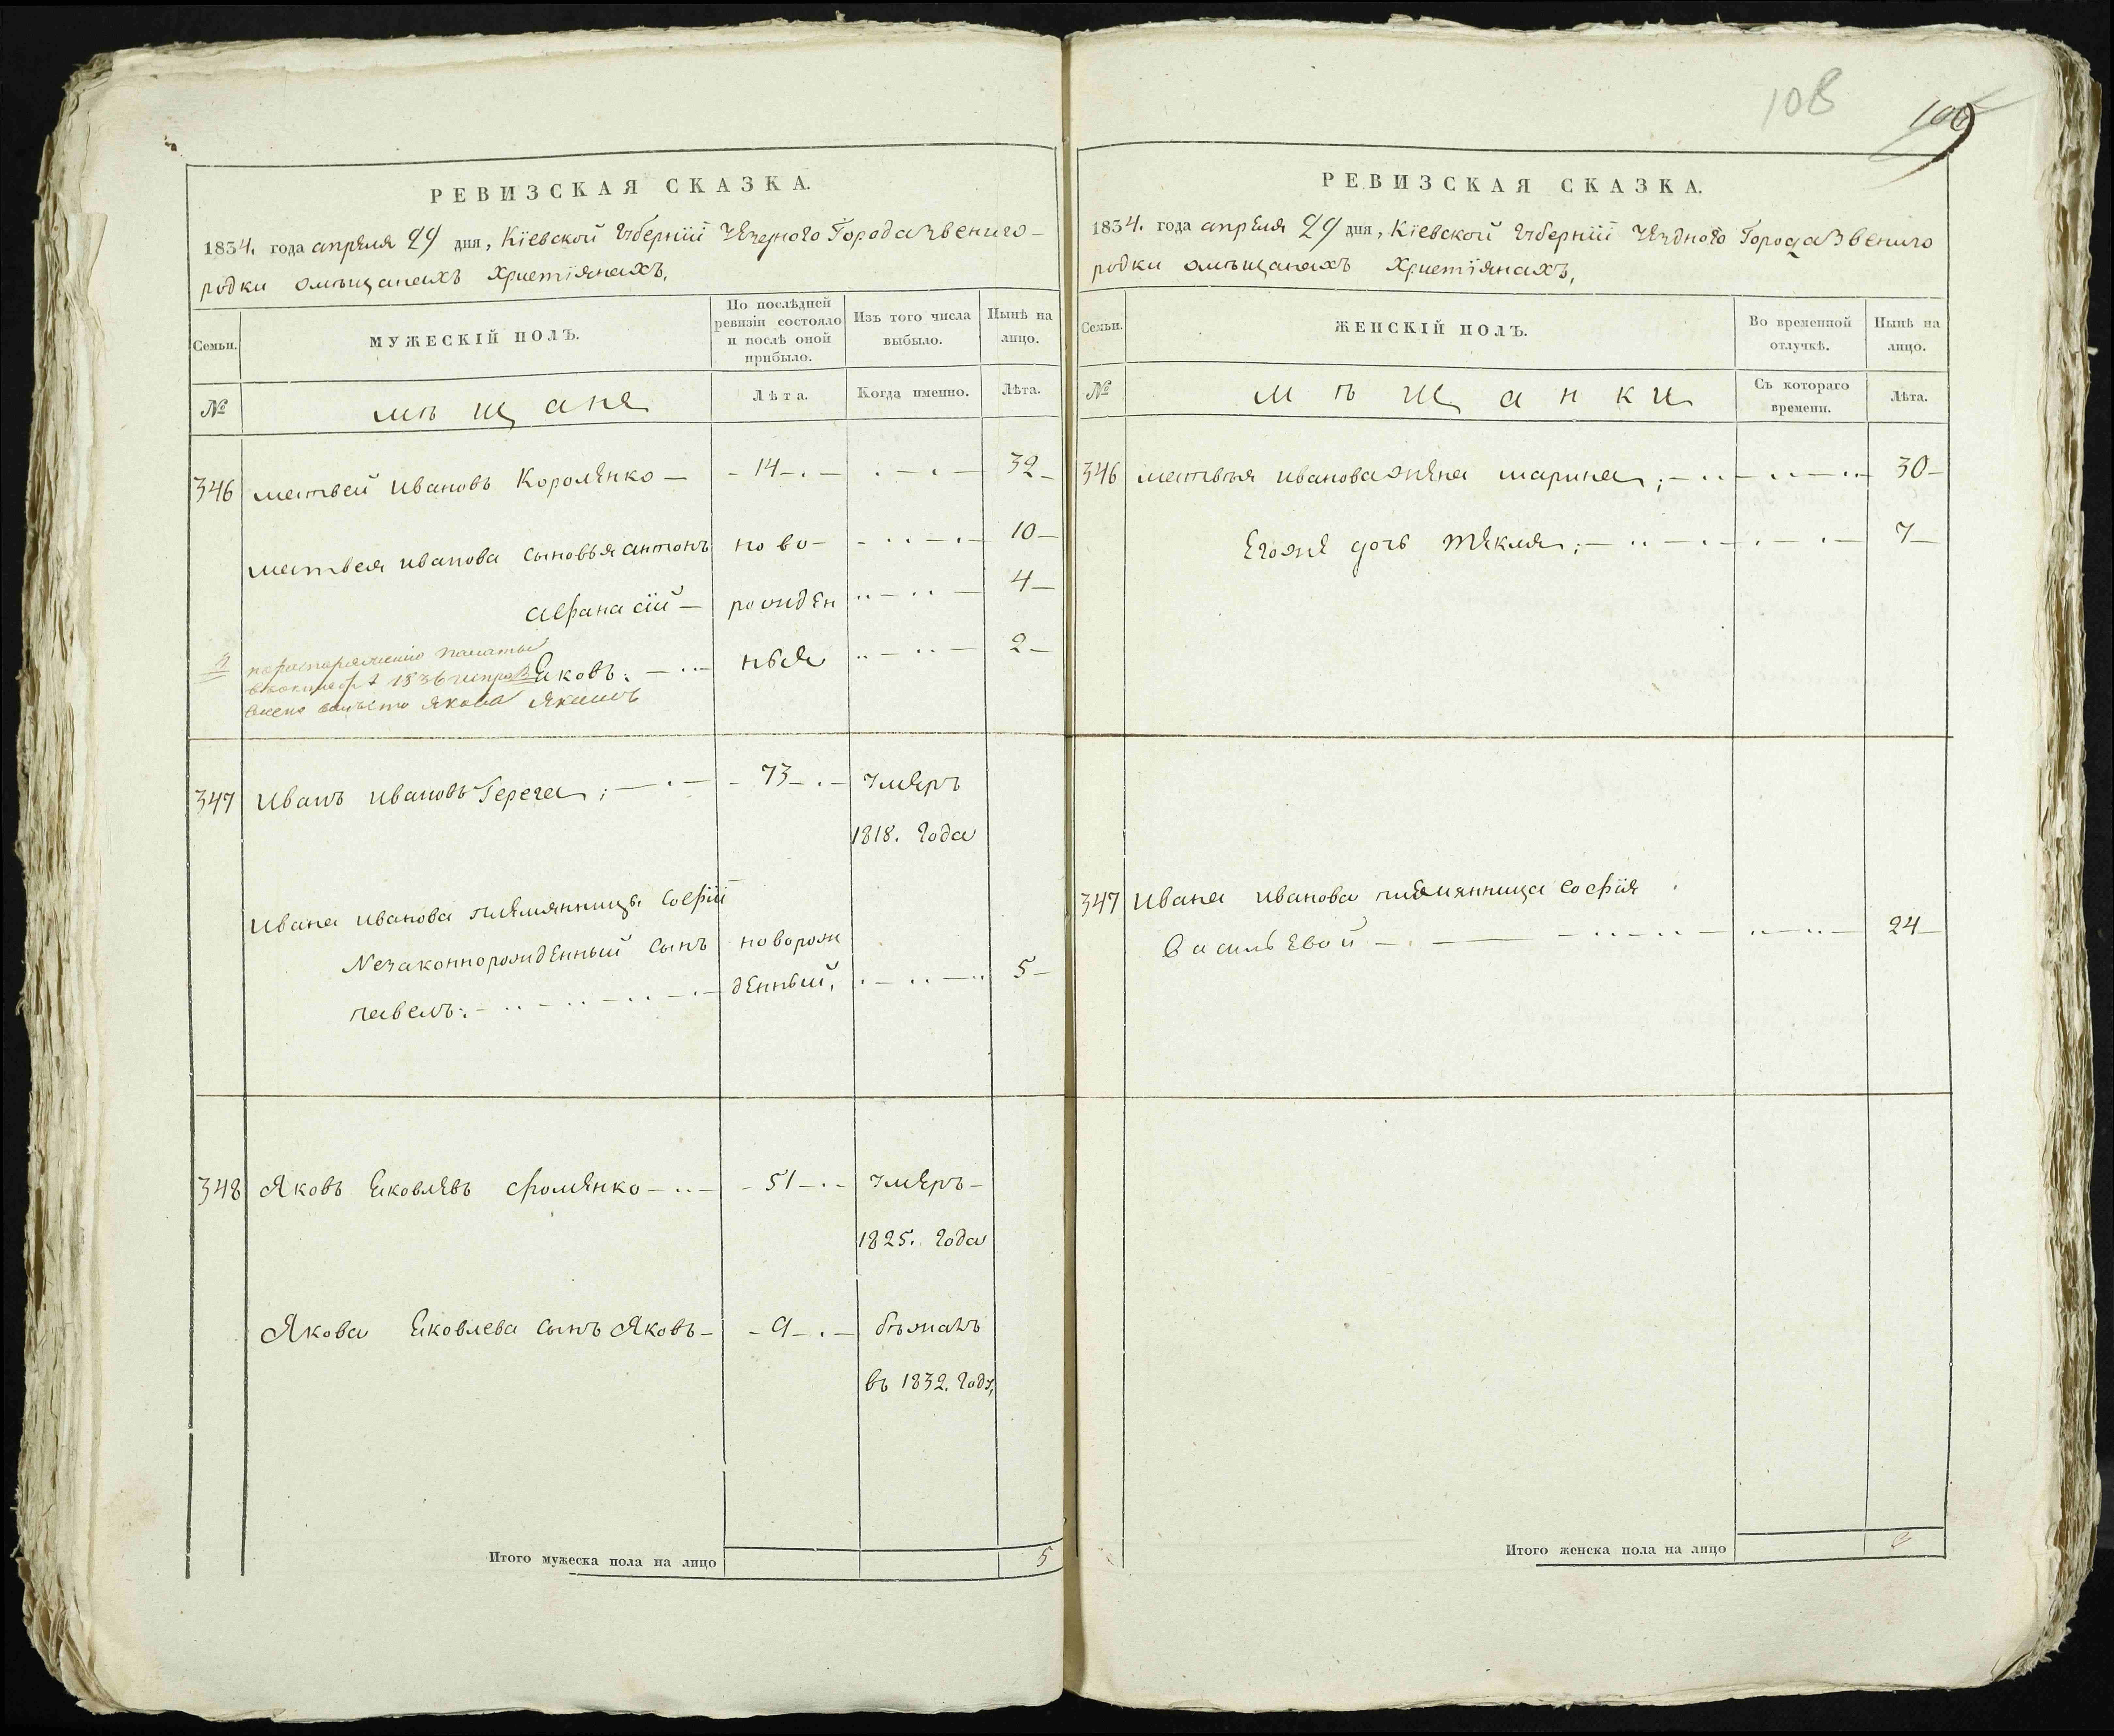 РЕВИЗСКАЯ СКАЗКА.
1834. года апреля 29 дня, Кіевской Губерніи Уезного Города Звениго-
родки омѣщанахъ Христіянахъ,
Семьи.
МУЖЕСКІЙ ПОЛЪ.
По послѣдней
ревизіи состояло
и послѣ оной
прибыло.
Изъ того числа
выбыло.
Нынѣ на
лицо.
№
мѣщане
Лѣта.
Когда именно.
Лѣта.
346 матвей Ивановъ Короленко — 14 — 32
матвея иванова сыновья антонъ ново- 10
афанасій — рожден 4
яковъ: нья 2
по распоряженію палаты
1836
вместо якова Якимъ
347 Иванъ Ивановъ Герега; — 73 — умеръ
1818. года
Ивана иванова племянницы Софіи
Незаконнорожденный сынъ новорож
павелъ: денный, 5
348 Яковъ Яковлевъ Фоменко — 51 — умеръ
1825. года
Якова Яковлева сынъ Яковъ — 9 — бѣжалъ
въ 1832. году,
Итого мужеска пола на лицо 5
108
109
РЕВИЗСКАЯ СКАЗКА.
1834. года апреля 29 дня, Кіевской Губерніи Уездного Города Звениго
родки омѣщанахъ Христіянахъ,
Семьи.
ЖЕНСКІЙ ПОЛЪ.
Во временной
отлучкѣ.
Нынѣ на
лицо.
№
мѣщанки
Съ котораго
времени.
Лѣта.
346 матвѣя иванова жена марина; 30
Егоже дочь текля; 7
347 Ивана иванова племянница софія
васильевой — 24
Итого женска пола на лицо 3